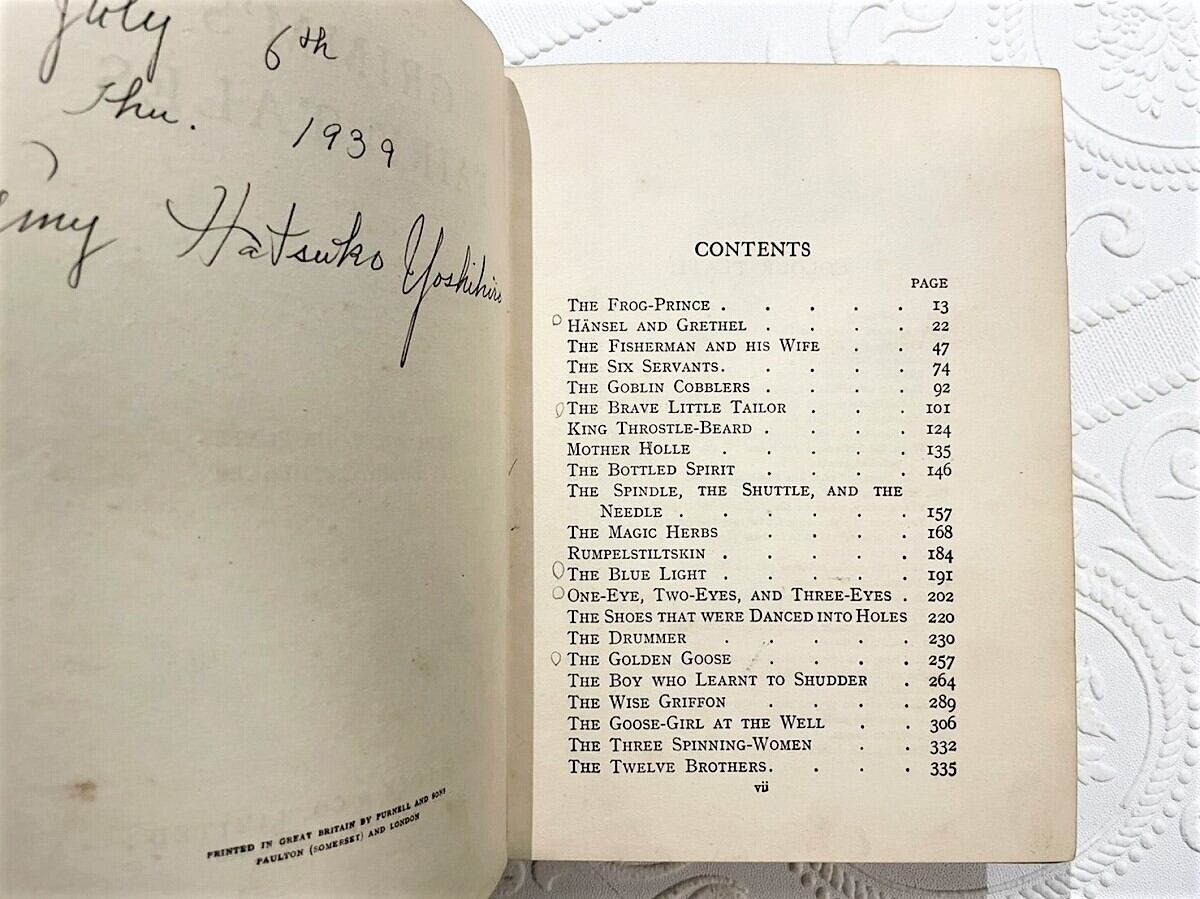 July 6th
Thu. 1939
Hatsuko Yoshihiro
PRINTED IN GREAT BRITAIN BY PURNELL AND SONS
PAULTON (SOMERSET) AND LONDON
CONTENTS
PAGE
THE FROG-PRINCE . . . . . 13
HÄNSEL AND GRETHEL . . . . 22
THE FISHERMAN AND HIS WIFE . . 47
THE SIX SERVANTS . . . . . 74
THE GOBLIN COBBLERS . . . . 92
THE BRAVE LITTLE TAILOR . . . 101
KING THROSTLE-BEARD . . . . 124
MOTHER HOLLE . . . . . 135
THE BOTTLED SPIRIT . . . . 146
THE SPINDLE, THE SHUTTLE, AND THE
NEEDLE . . . . . . 157
THE MAGIC HERBS . . . . 168
RUMPELSTILTSKIN . . . . . 184
THE BLUE LIGHT . . . . . 191
ONE-EYE, TWO-EYES, AND THREE-EYES . 202
THE SHOES THAT WERE DANCED INTO HOLES 220
THE DRUMMER . . . . . 230
THE GOLDEN GOOSE . . . . 257
THE BOY WHO LEARNT TO SHUDDER . 264
THE WISE GRIFFON . . . . 289
THE GOOSE-GIRL AT THE WELL . . 306
THE THREE SPINNING-WOMEN . . 332
THE TWELVE BROTHERS . . . . 335
vii